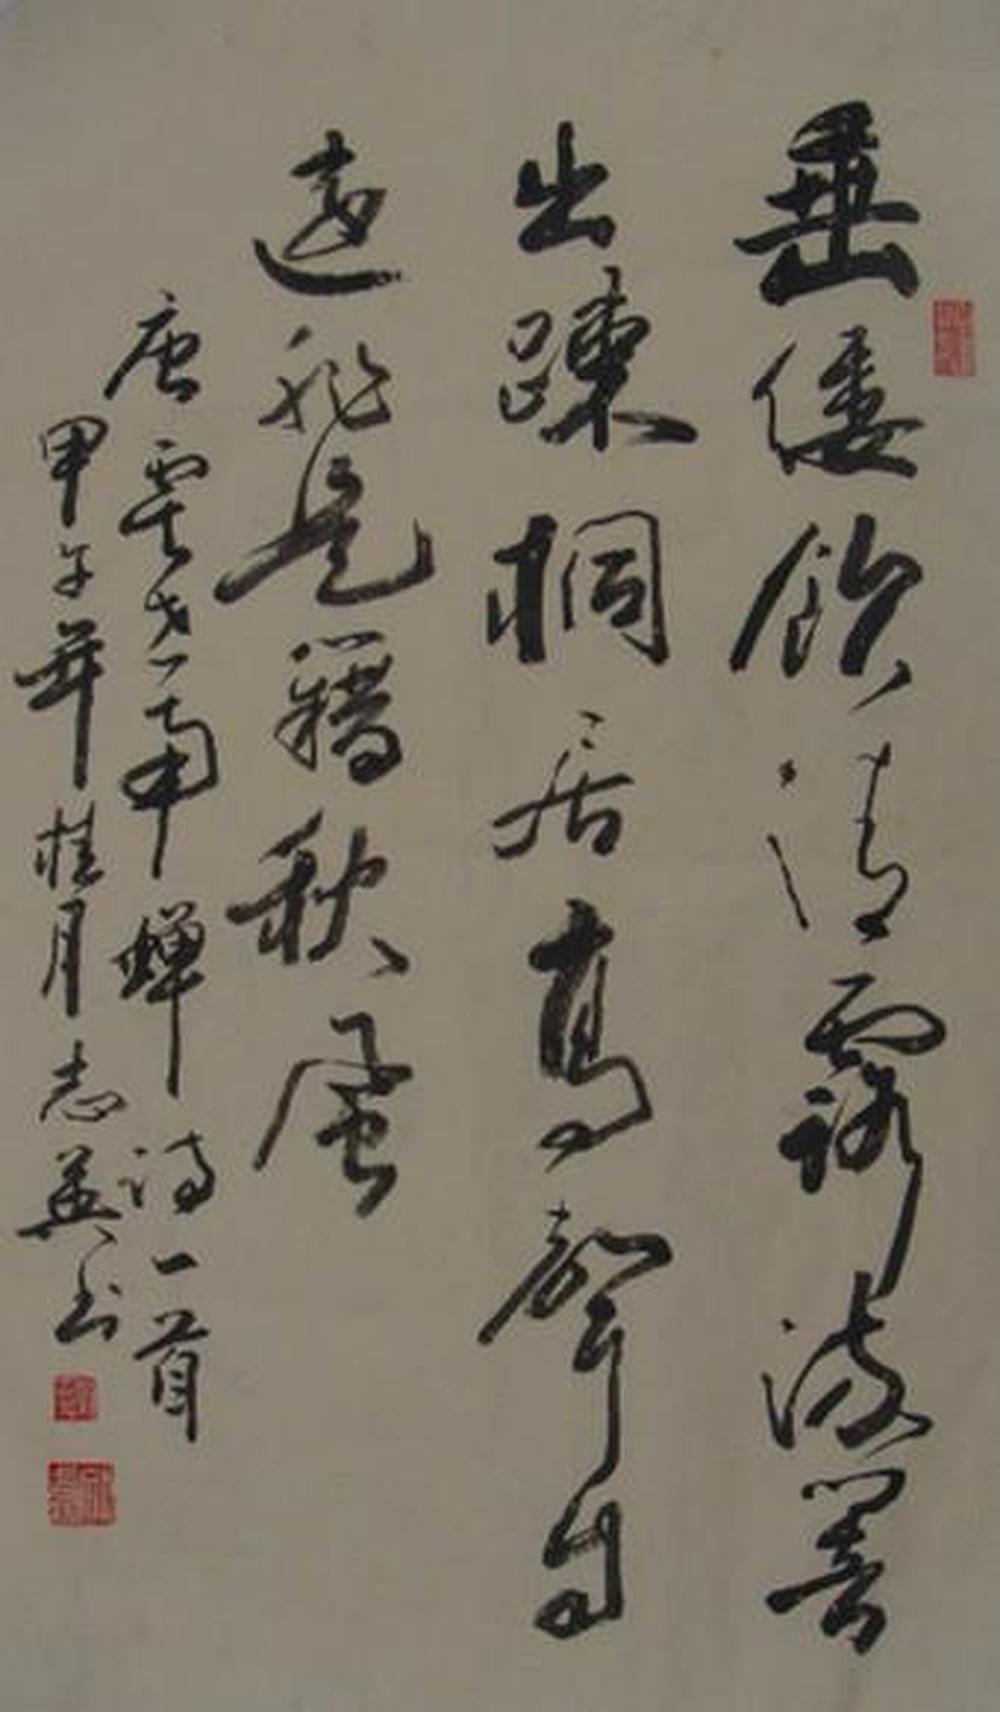 垂倭飲清露流響
出踈桐居高聲自
遠非是籍秋風
唐虞世南蝉詩一首
甲午年桂月志英书